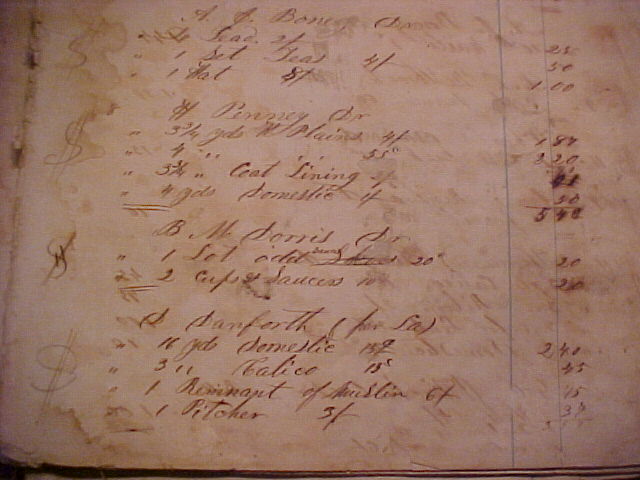 A. J. Bone Dr
" Lead 2/ 25
" 1 Set Teas 4/ 50
" 1 Hat 8/ 1.00
H Penney Dr
" 3 3/4 yds W Plains 4/ 1 87
" 4 " " 55c 2 20
" 3 3/4 " Coat Lining
" 4 yds Domestic 1/ 50
5 48
B. M. Dorris Dr
" 1 Lot odd 20c 20
" 2 Cups & Saucers 10 20
S Danforth (per La)
" 16 yds Domestic 15c 2 40
" 3 " Calico 15c 45
" 1 Remnant of Muslin 6/ 75
" 1 Pitcher 3/ 37